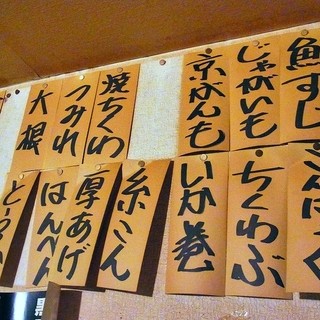 魚すじ
じゃがいも
京がんも
焼ちくわ
つみれ
大根
ちくわぶ
いか巻
糸こん
厚あげ
はんぺん